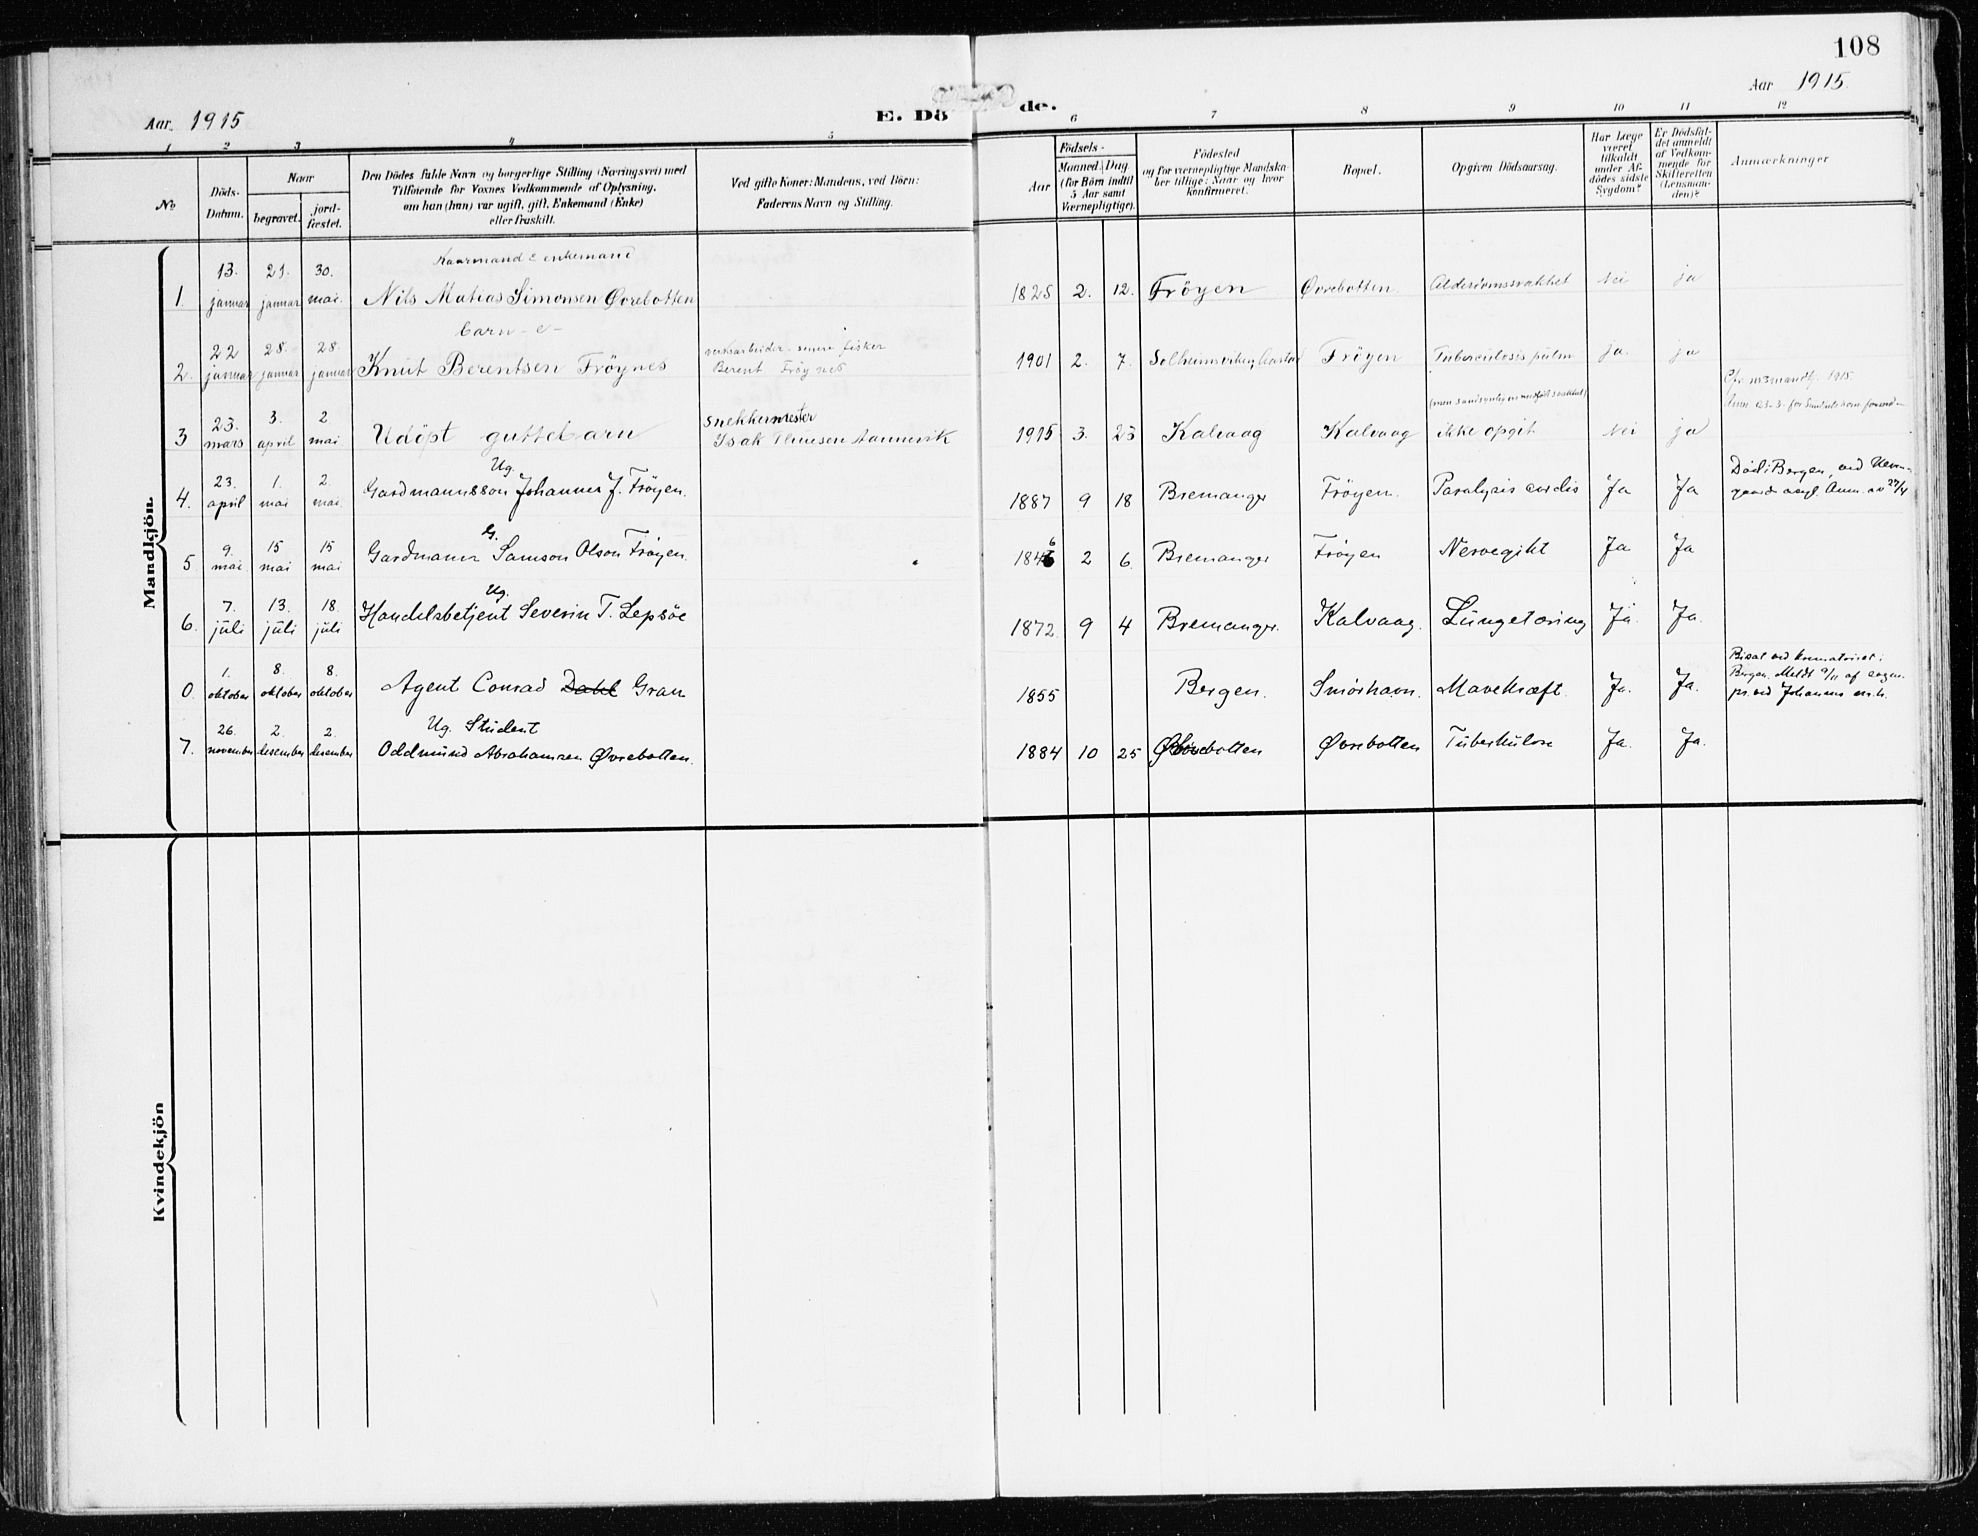 108
Aar 1915 E. Dö de. Aar 1915.
1 2 3 4 5 6 7 8 9 10 11 12
No
Döds-Datum.
Naar
begravet.
jord-fæstet.
Den Dödes fulde Navn og borgerlige Stilling (Næringsvei) med
Tilföiende for Voxnes Vedkommende af Oplysning,
om han (hun) var ugift, gift, Enkemand (Enke)
eller fraskilt.
Ved gifte Koner: Mandens, ved Börn:
Faderens Navn og Stilling.
Aar
Födsels-
Maaned. Dag
(for Börn indtil
5 Aar samt
Værnepligtige).
Födested
og for værnepligtige Mandska-
ber tillige: Naar og hvor
konfirmeret.
Bopæl.
Opgiven Dödsaarsag.
Har Læge
været
tilkaldt
under Af-
dödes sidste
Sygdom?
Er Dödsfal-
det anmeldt
af Vedkom-
mende for
Skifteretten
(Lensman-
den)?
Anmærkninger
Mandkjön.
Kaarmand e enkemand
1. 13. januar 21. januar 30. mai. Nils Matias Simonsen Øvrebotten 1825 2. 12. Frøyen Øvrebotten. Alderdomssvakhet Nei ja
barn - e -
2. 22 januar 28. januar 28. januar Knut Berentsen Frøynes
verksarbeider - senere fisker
Berent Frøynes
1901 2. 7. Frøyen Tuberculosis pulm ja. ja
3 23. mars 3. april 2 mai Udøpt guttebarn
Snekkermester
Isak Aannevik
1915 3. 23 Kalvaag Kalvaag
ikke opgit Nei ja
1915.
4. 23. april 1. mai 2. mai. Ug. Gardmannsson Johannes J. Frøyen. 1887 9 18 Bremanger Frøyen. Paralysis cordis Ja Ja
Død i Bergen, ved
5. 9. mai 15 mai 15 mai G. Gardmann Samson Olson Frøyen. 1846 2 6. Bremanger Frøyen Nervegikt Ja Ja
6. 7. juli 13. juli 18. juli Ug. Handelsbetjent Severin T. Lepsøe 1872. 9 4 Bremanger. Kalvaag. Lungetæring Ja. Ja.
0. 1. oktober 8. oktober 8. oktober Agent Conrad Dahl Gran 1855 Bergen. Smørhavn. Mavekræft. Ja. Ja.
Bisat ved krematoriet i
Bergen. Meldt 9/11 af
7. 26. november 2. desember 2. desember Ug. Student
Oddmund Abrahamsen Øvrebotten. 1884 10 25 Øvrebotten Øvrebotten Tuberkulose Ja. Ja.
Kvindekjön